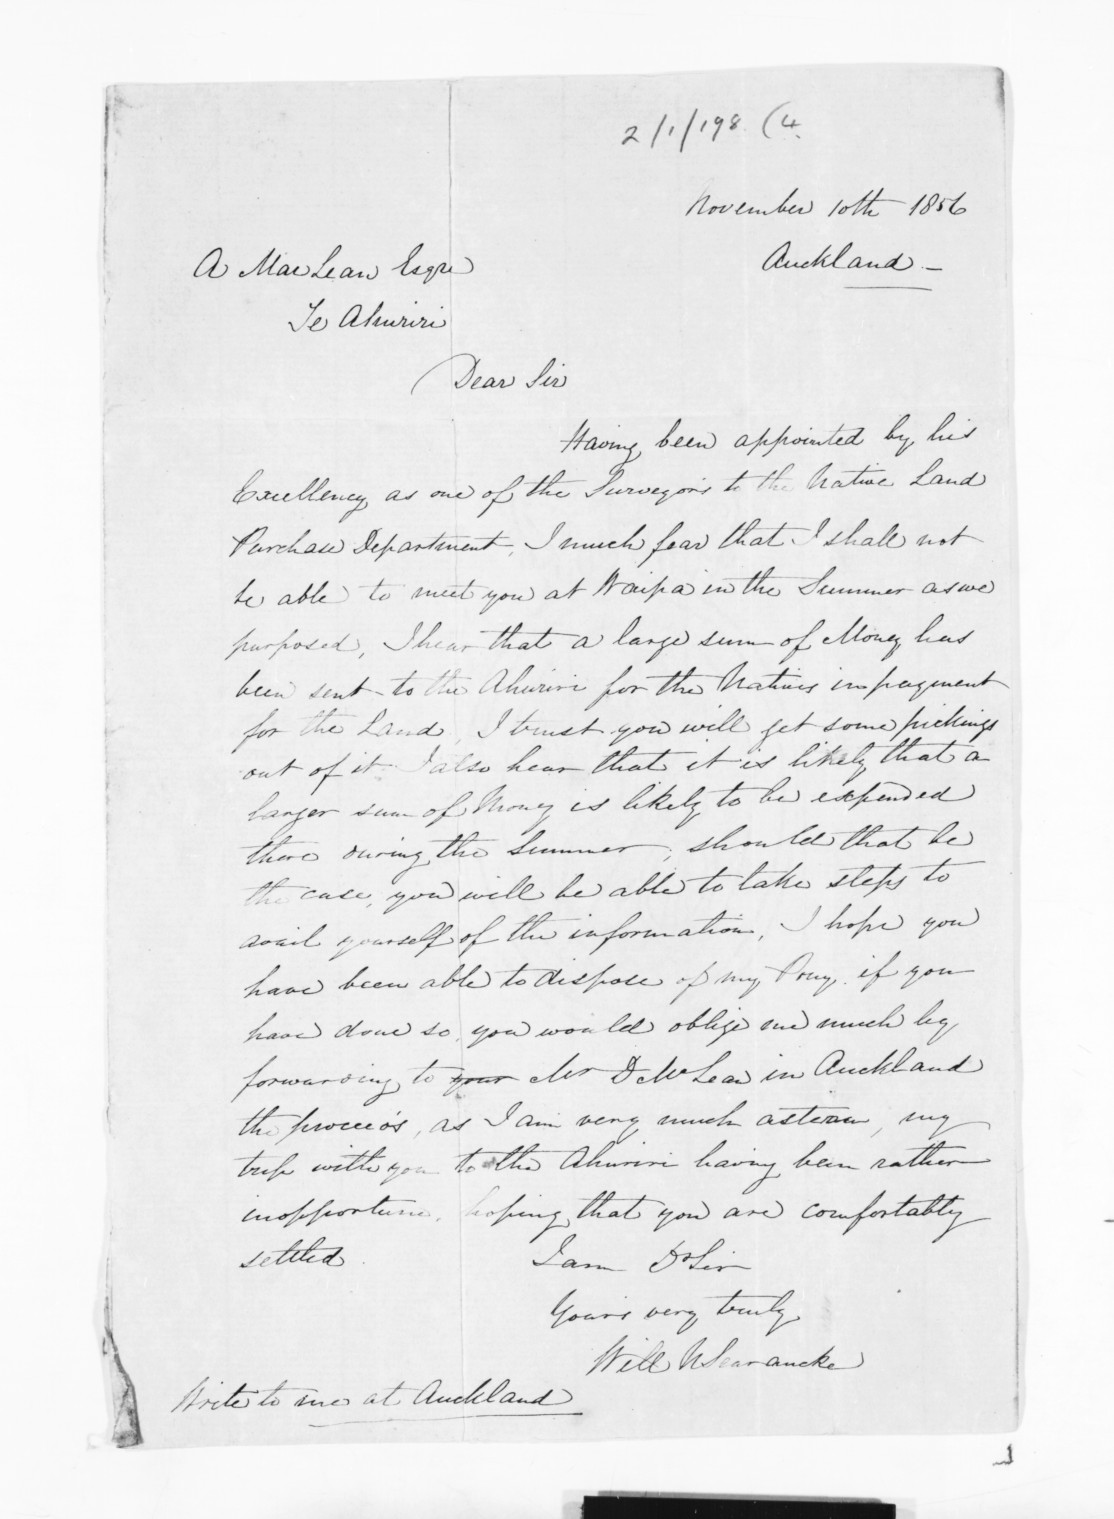 2/1/198 (4.
November 10th 1856
Auckland -
A MacLean Esqre
Te Ahuriri
Dear Sir
Having been appointed by his
Excellency as one of the Surveyors to the Native Land
Purchase Department, I much fear that I shall not
be able to meet you at Waipa in the Summer as we
purposed, I hear that a large sum of Money has
been sent to the Ahuriri for the Natives in payment
for the Land, I trust you will get some pickings
out of it. I also hear that it is likely that a
larger sum of Money is likely to be expended
there during the Summer, should that be
the case, you will be able to take steps to
avail yourself of the information, I hope you
have been able to dispose of my Pony. if you
have done so, you would oblige me much by
forwarding to your Mr D McLean in Auckland
the proceeds, as I am very much astern, my
trip with you to the Ahuriri having been rather
inopportune, hoping that you are comfortably
settled.
I am Dr Sir
Yours very truly
Will N Searancke
Write to me at Auckland